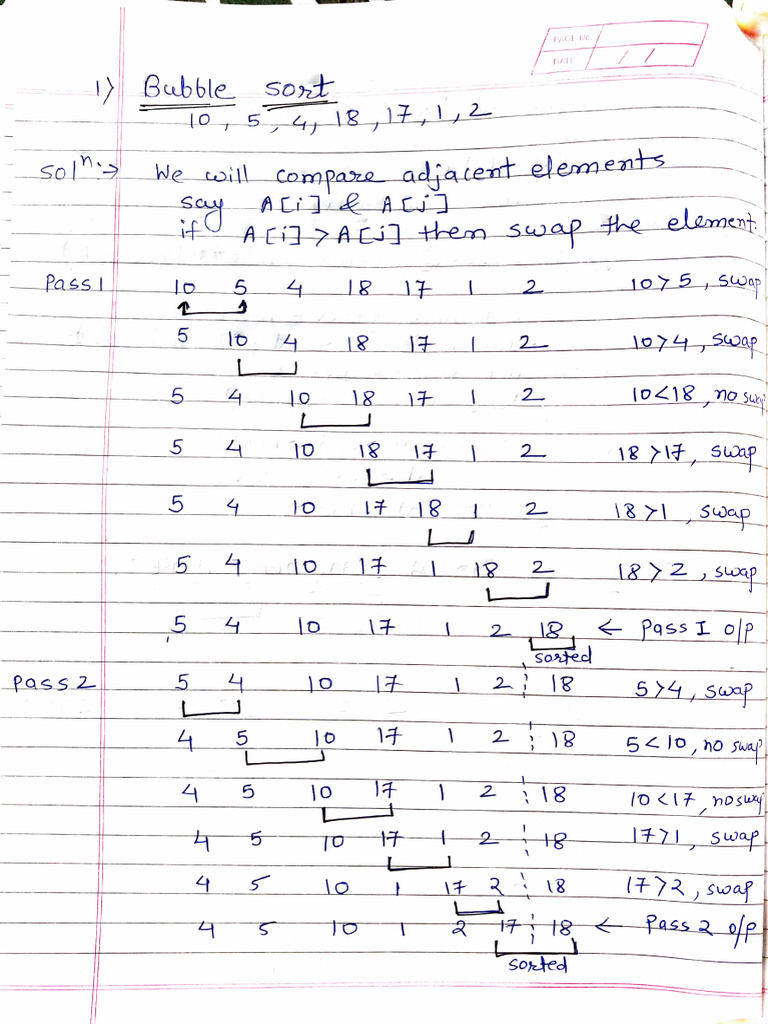 PAGE No.
DATE / /
1) Bubble sort
10, 5, 4, 18, 17, 1, 2
Solⁿ:→ We will compare adjacent elements
say A[i] & A[j]
if A[i] > A[j] then swap the element.
Pass 1 10 5 4 18 17 1 2 10>5, swap
5 10 4 18 17 1 2 10>4, swap
5 4 10 18 17 1 2 10<18, no swap
5 4 10 18 17 1 2 18>17, swap
5 4 10 17 18 1 2 18>1, swap
5 4 10 17 1 18 2 18>2, swap
5 4 10 17 1 2 18 ← Pass I o/p
sorted
Pass 2 5 4 10 17 1 2 18 5>4, swap
4 5 10 17 1 2 18 5<10, no swap
4 5 10 17 1 2 18 10<17, no swap
4 5 10 17 1 2 18 17>1, swap
4 5 10 1 17 2 18 17>2, swap
4 5 10 1 2 17 18 ← Pass 2 o/p
sorted